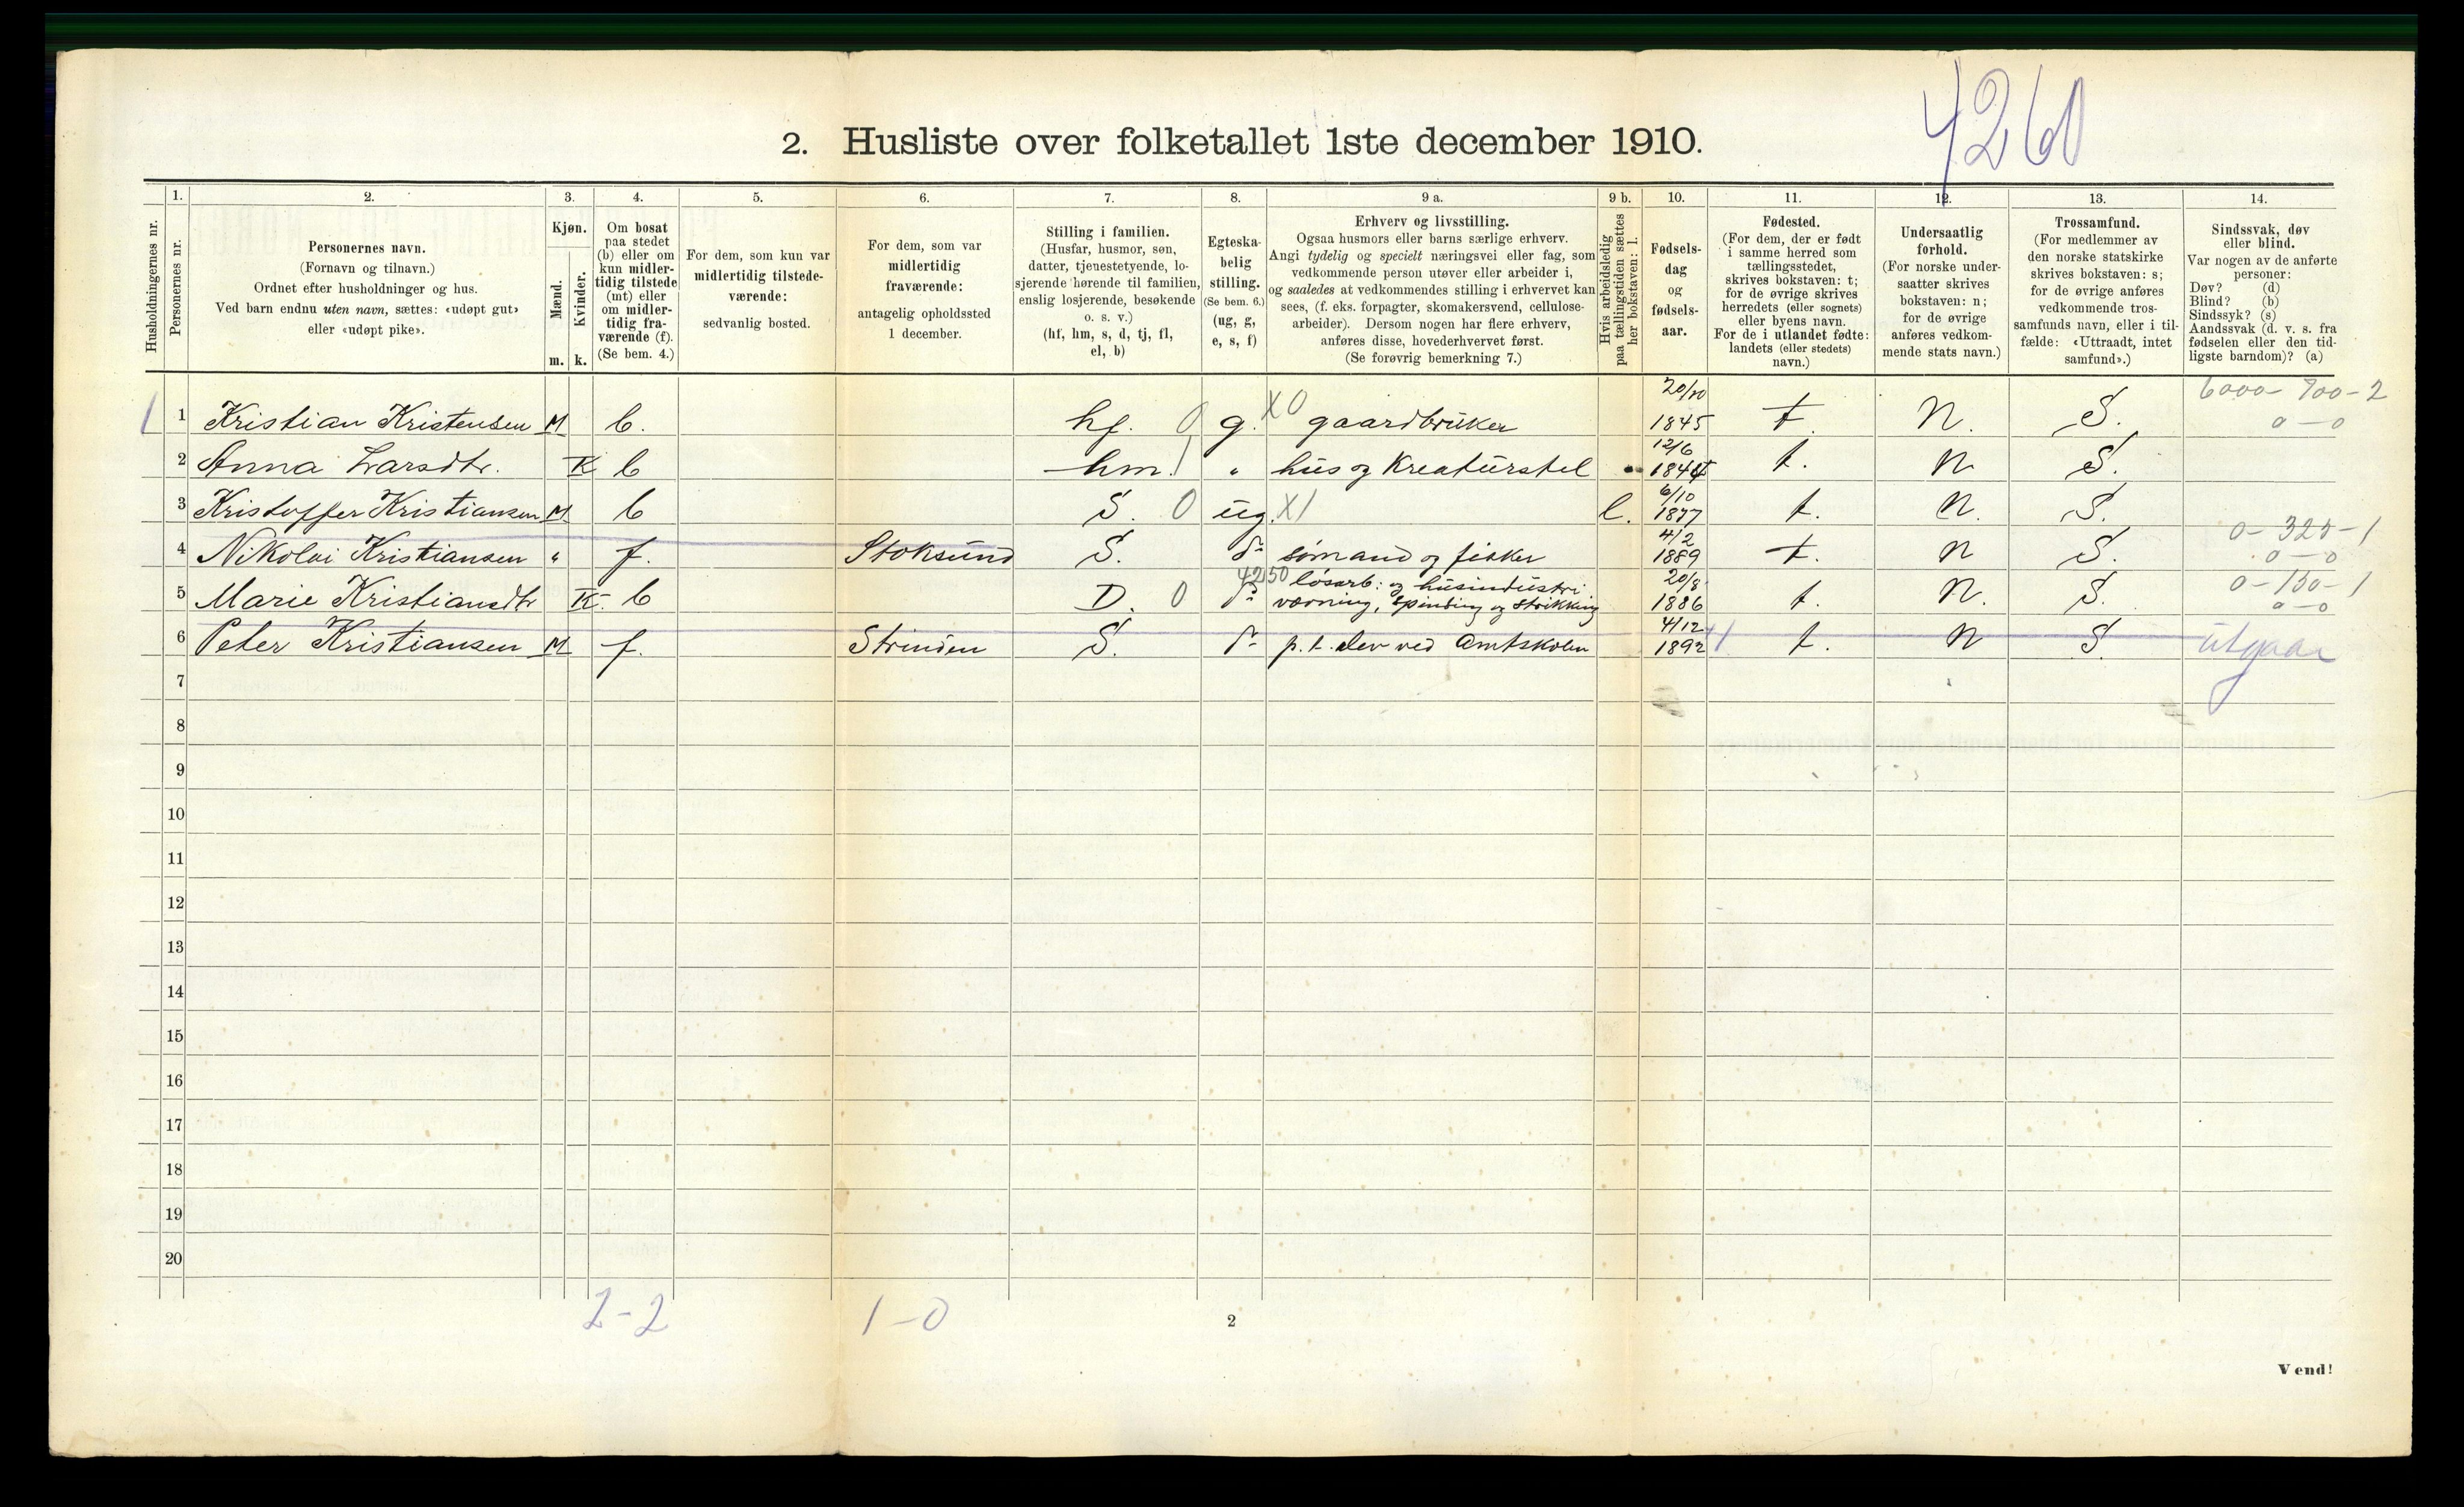 4260
2. Husliste over folketallet 1ste december 1910.
1. 2. 3. 4. 5. 6. 7. 8. 9 a. 9 b. 10. 11. 12. 13. 14.
Husholdningernes nr.
Personernes nr.
Personernes navn.
(Fornavn og tilnavn.)
Ordnet efter husholdninger og hus.
Ved barn endnu uten navn, sættes: «udøpt gut»
eller «udøpt pike».
Kjøn.
Mænd.
Kvinder.
m. k.
Om bosat
paa stedet
(b) eller om
kun midler-
tidig tilstede
(mt) eller
om midler-
tidig fra-
værende (f).
(Se bem. 4.)
For dem, som kun var
midlertidig tilstede-
værende:
sedvanlig bosted.
For dem, som var
midlertidig
fraværende:
antagelig opholdssted
1 december.
Stilling i familien.
(Husfar, husmor, søn,
datter, tjenestetyende, lo-
sjerende hørende til familien,
enslig losjerende, besøkende
o. s. v.)
(hf, hm, s, d, tj, fl,
el, b)
Egteska-
belig
stilling.
(Se bem. 6.)
(ug, g,
e, s, f)
Erhverv og livsstilling.
Ogsaa husmors eller barns særlige erhverv.
Angi tydelig og specielt næringsvei eller fag, som
vedkommende person utøver eller arbeider i,
og saaledes at vedkommendes stilling i erhvervet kan
sees, (f. eks. forpagter, skomakersvend, cellulose-
arbeider). Dersom nogen har flere erhverv,
anføres disse, hovederhvervet først.
(Se forøvrig bemerkning 7.)
Hvis arbeidsledig
paa tællingstiden sættes
her bokstaven: l.
Fødsels-
dag
og
fødsels-
aar.
Fødested.
(For dem, der er født
i samme herred som
tællingsstedet,
skrives bokstaven: t;
for de øvrige skrives
herredets (eller sognets)
eller byens navn.
For de i utlandet fødte:
landets (eller stedets)
navn.)
Undersaatlig
forhold.
(For norske under-
saatter skrives
bokstaven: n;
for de øvrige
anføres vedkom-
mende stats navn.)
Trossamfund.
(For medlemmer av
den norske statskirke
skrives bokstaven: s;
for de øvrige anføres
vedkommende tros-
samfunds navn, eller i til-
fælde: «Uttraadt, intet
samfund».)
Sindssvak, døv
eller blind.
Var nogen av de anførte
personer:
Døv? (d)
Blind? (b)
Sindssyk? (s)
Aandssvak (d. v. s. fra
fødselen eller den tid-
ligste barndom)? (a)
20/10 6000-700-2
1 1 Kristian Kristensen M b. hf. 0 g. X0 gaardbruker 1845 t. N. S. 0-0
12/6
2 Anna Larsdtr. K b hm. 1 " hus og Kreaturstel 1844 t. N S.
6/10
3 Kristoffer Kristiansen M b S. 0 ug. X1 l. 1877 t. N. S.
4/2 0-325-1
4 Nikolai Kristiansen " f. Stoksund S. d⁰ sømand og fisker 1889 t. N S. 0-0
4250 løsarb: og husindustri 20/8 0-150-1
5 Marie Kristiansdtr K. b D. 0 d⁰ vævning, spinding og strikking 1886 t. N. S. 0-0
4/12
6 Peter Kristiansen M f. Strinden S. d⁰ p. t. elev ved Amtskolen 1892 t. N S utgaar
7
8
9
10
11
12
13
14
15
16
17
18
19
20
2-2 1-0
2
Vend!